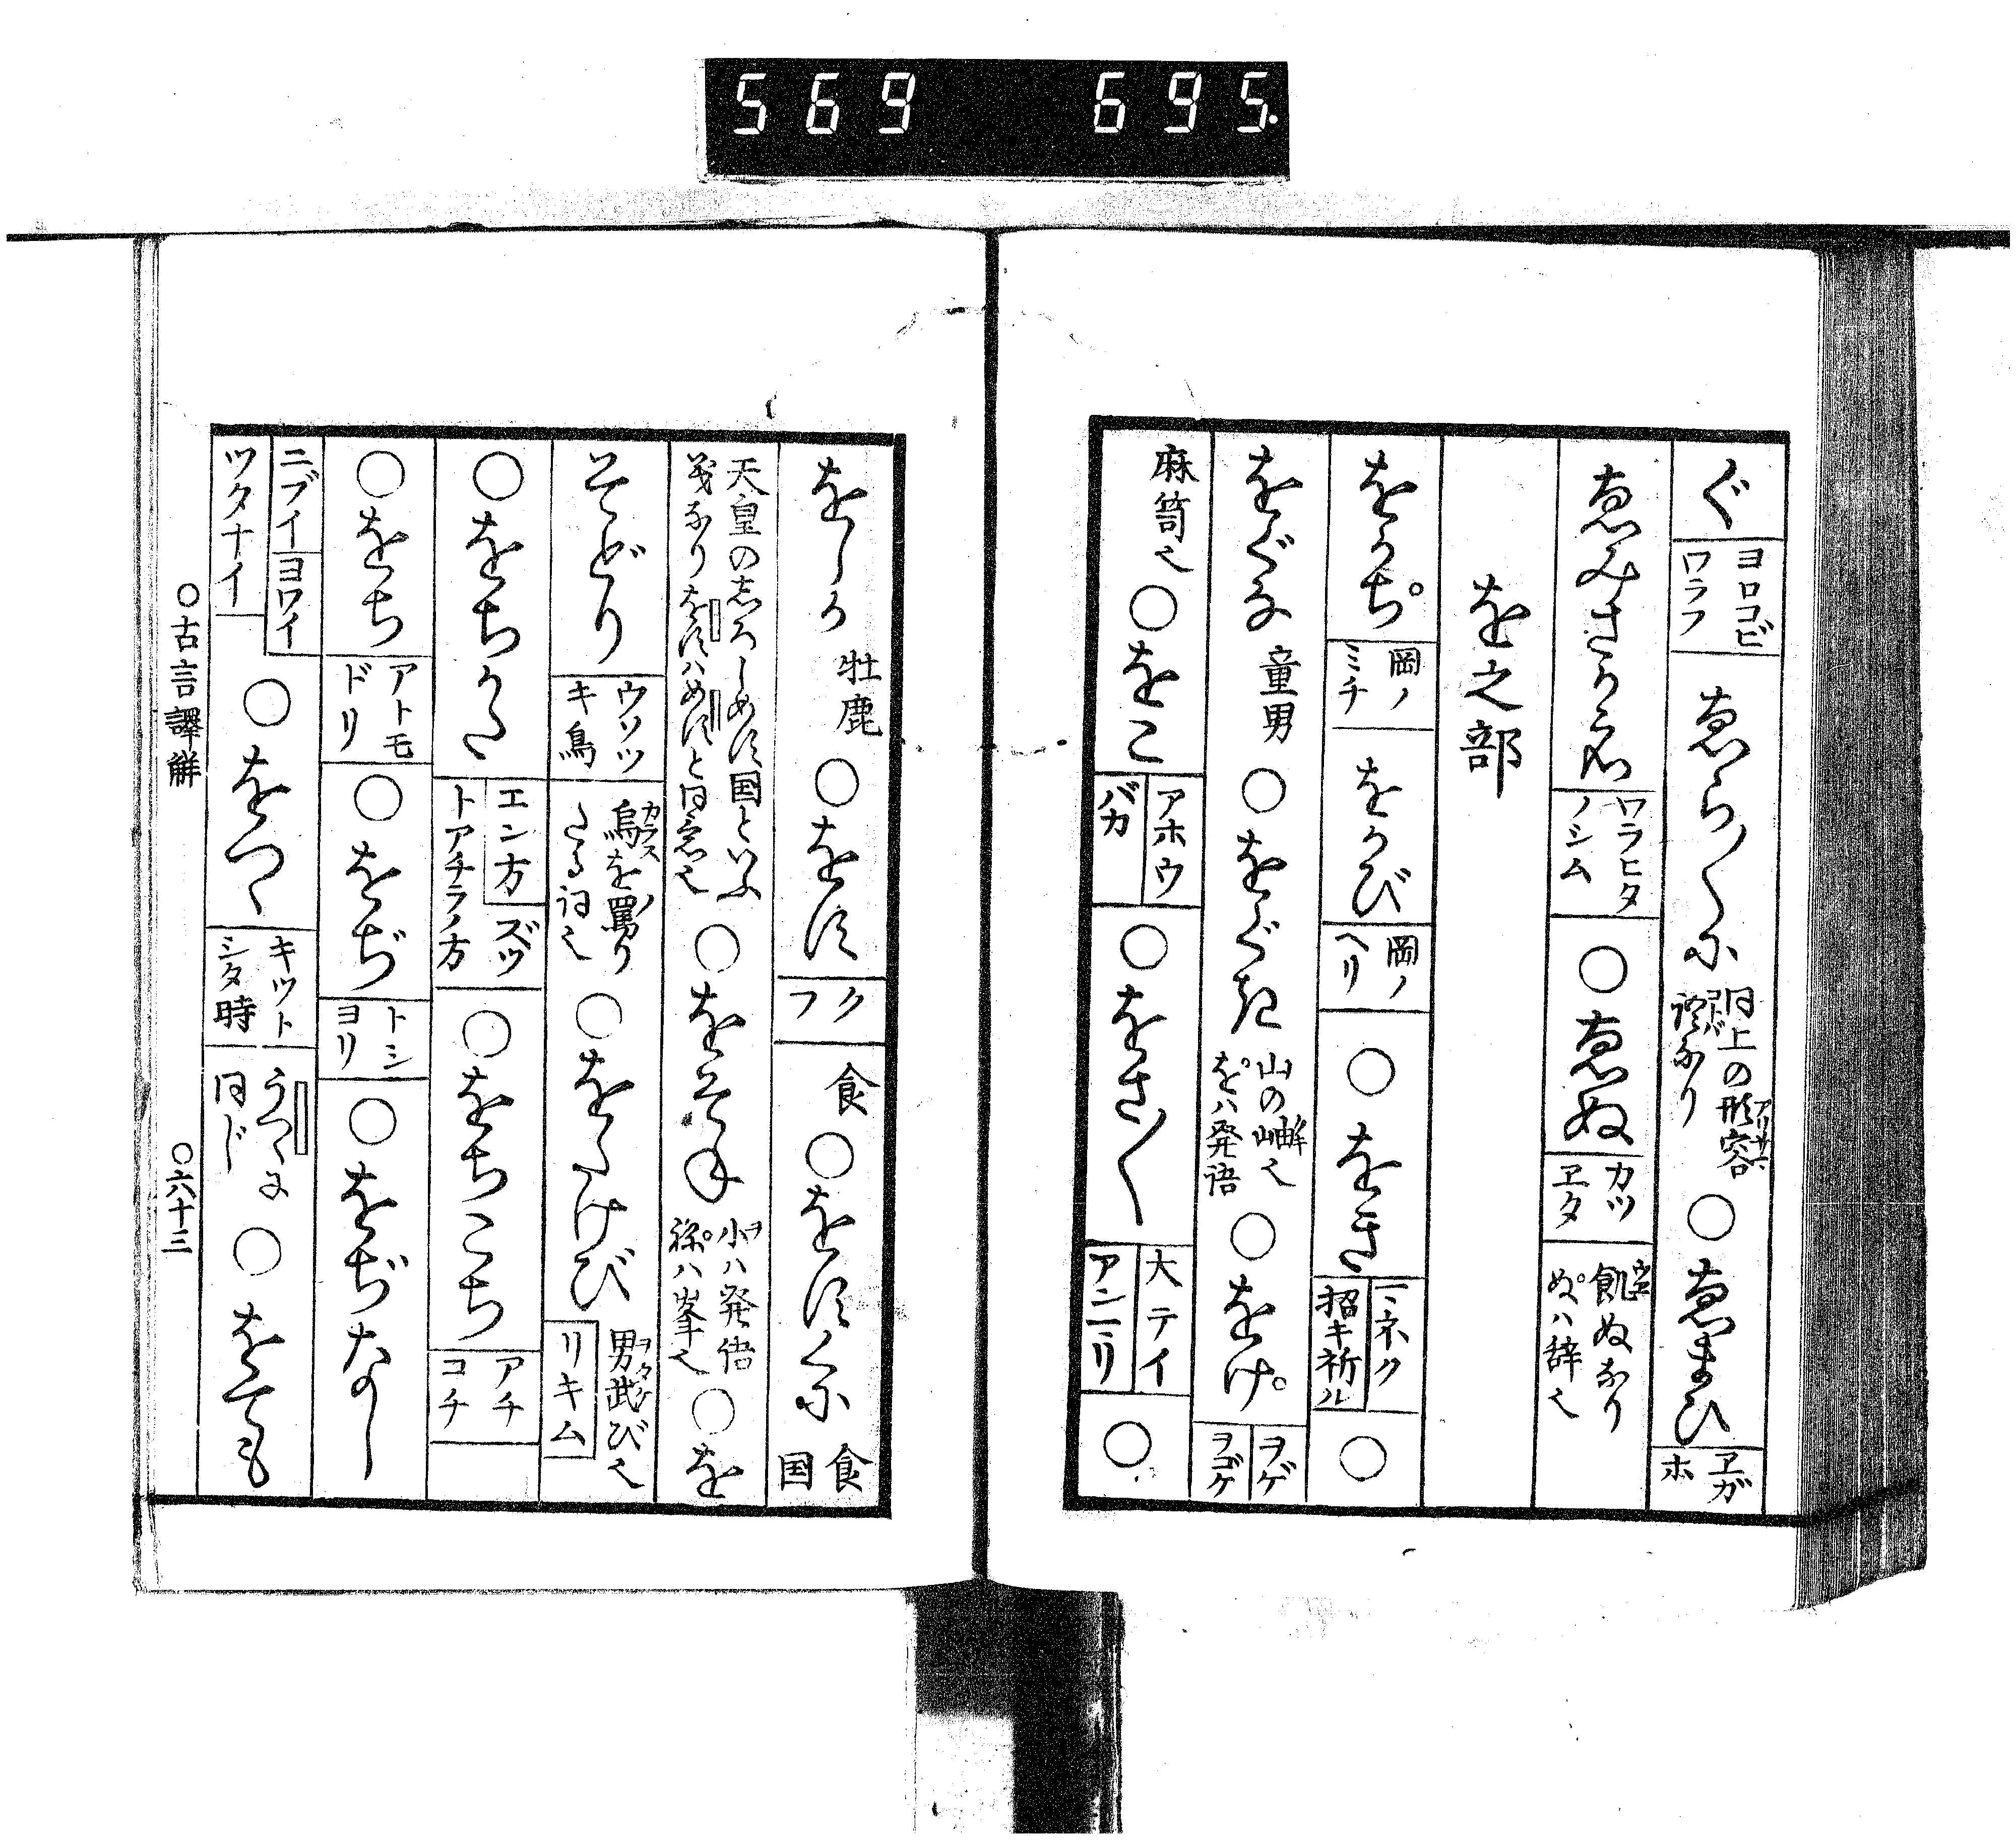 569 695.
ぐ ヨロコビワラフ ゑら〳〵に 同上の形容アリサマ詞コトバなり ○ゑまひ ヱガホ
ゑみさかえ ワラヒタノシム ○ゑぬ カツヱタ 飢ウヱぬなりぬハ辞也
を之部
をかぢ 岡ノミチ をかび 岡ノヘリ ○をき マネク 招キ祈ル ○
をぐな 童男 ○をぐき 山の岫也をハ発語 ○をけ ヲゲ ヲゴケ
麻笥也 ○をこ アホウ バカ ○をさ〳〵 大テイ アンマリ ○
をしか 牡鹿 ○をす クフ 食 ○をすくに 食国
天皇の志ろしめす国といふ義なりをすハめすと同意也 ○をそね 小ヲハ発語祢ハ峯也 ○を
そどり ウソツキ鳥 烏カラスを罵ノリたる詞也 ○をたけび 男武ヲタケび也 リキム
○をちかた エン方 ズツトアチラノ方 ○をちこち アチコチ
○をち アトモドリ ○をぢ トシヨリ ○をぢなし
ニブイ ヨワイ ツタナイ ○をつゝ キツトシタ時 うつゝに同じ ○をても
○古言譯解 ○六十三